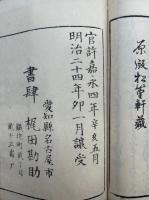 原版松篁軒藏
官許嘉永四年辛亥五月
明治二十四年卯一月讓受
愛知縣名古屋市
書肆 梶田勘助